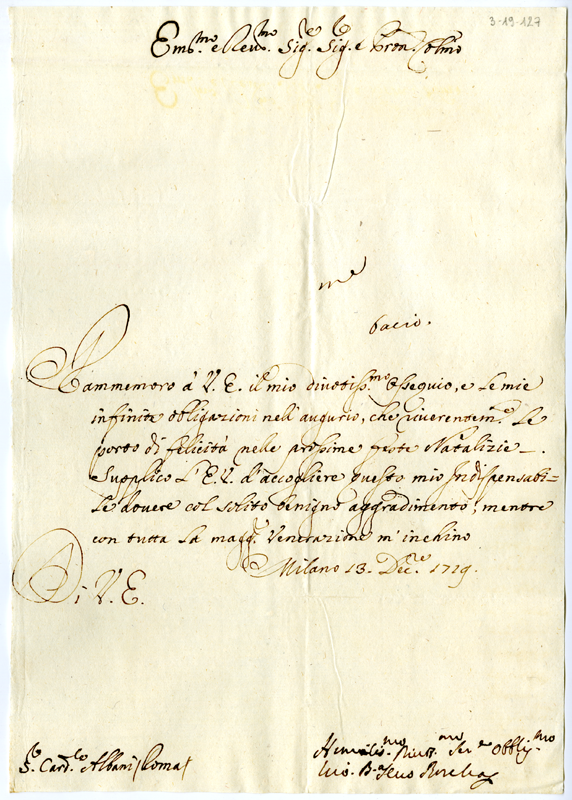 3-19-127
Em.mo e Rev.mo Sig.re Sig.re e Pron. Colmo
m.e
bacio.
Rammemoro à V. E. il mio divotiss.mo Ossequio, e le mie
infinite obligazioni nell'augurio, che riverentem.e Le
porto di felicità nelle prossime feste Natalizie.
Supplico L'E. V. d'accogliere questo mio Indispensabi=
le dovere col solito benigno aggradimento, mentre
con tutta la magg.e Venerazione m'inchino
Milano 13. Dec.re 1719.
Di V. E.
S.r Card.le Albani Roma
Humilis.mo Ser.e Obblig.mo